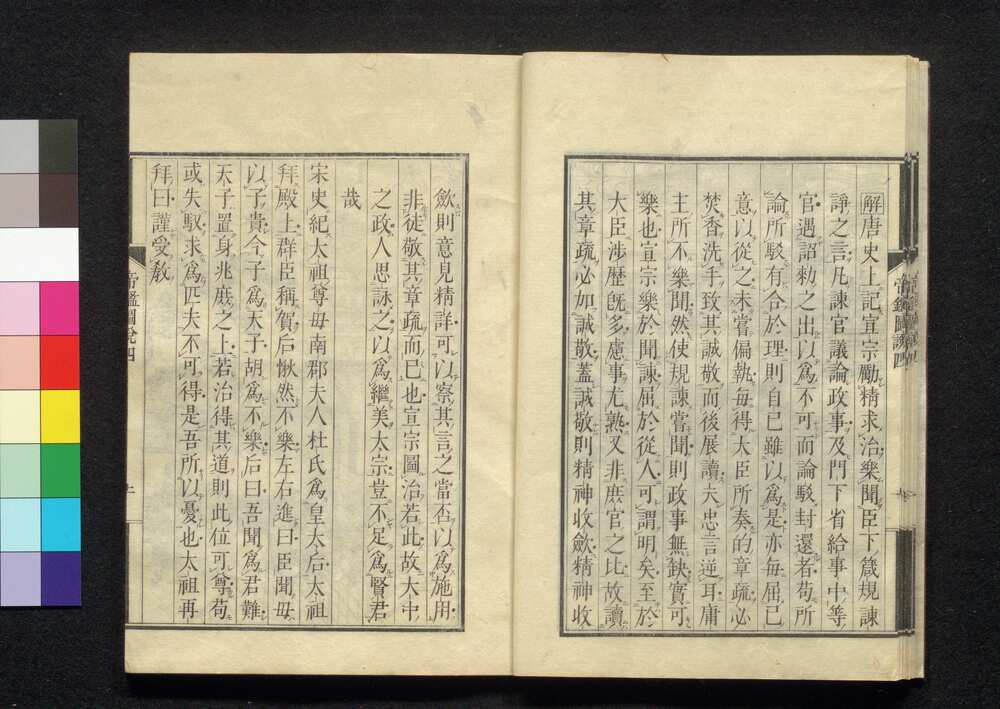 解唐史上記宣宗勵精求治樂聞臣下箴規諫
諍之言凡諫官議論政事及門下省給事中等
官遇詔勅之出以爲不可而論駁封還者苟所
論所駁有合於理則自已雖以爲是亦每屈已
意以從之未嘗偏執每得大臣所奏的章疏必
焚香洗手致其誠敬而後展讀夫忠言逆耳庸
主所不樂聞然使規諫嘗聞則政事無缺實可
樂也宣宗樂於聞諫屈於從人可謂明矣至於
大臣涉歷旣多慮事尤熟又非庶官之比故讀
其章疏必如誠敬蓋誠敬則精神收歛精神收
帝鑑圖說四
歛則意見精詳可以察其言之當否以爲施用
非徒敬其章疏而巳也宣宗圖治若此故大中
之政人思詠之以爲繼美太宗豈不足爲賢君
哉
宋史紀太祖尊母南郡夫人杜氏爲皇太后太祖
拜殿上群臣稱賀后愀然不樂左右進曰臣聞母
以子貴今子爲天子胡爲不樂后曰吾聞爲君難
天子置身兆庶之上若治得其道則此位可尊苟
或失馭求爲匹夫不可得是吾所以憂也太祖再
拜曰謹受敎
帝鑑圖說四